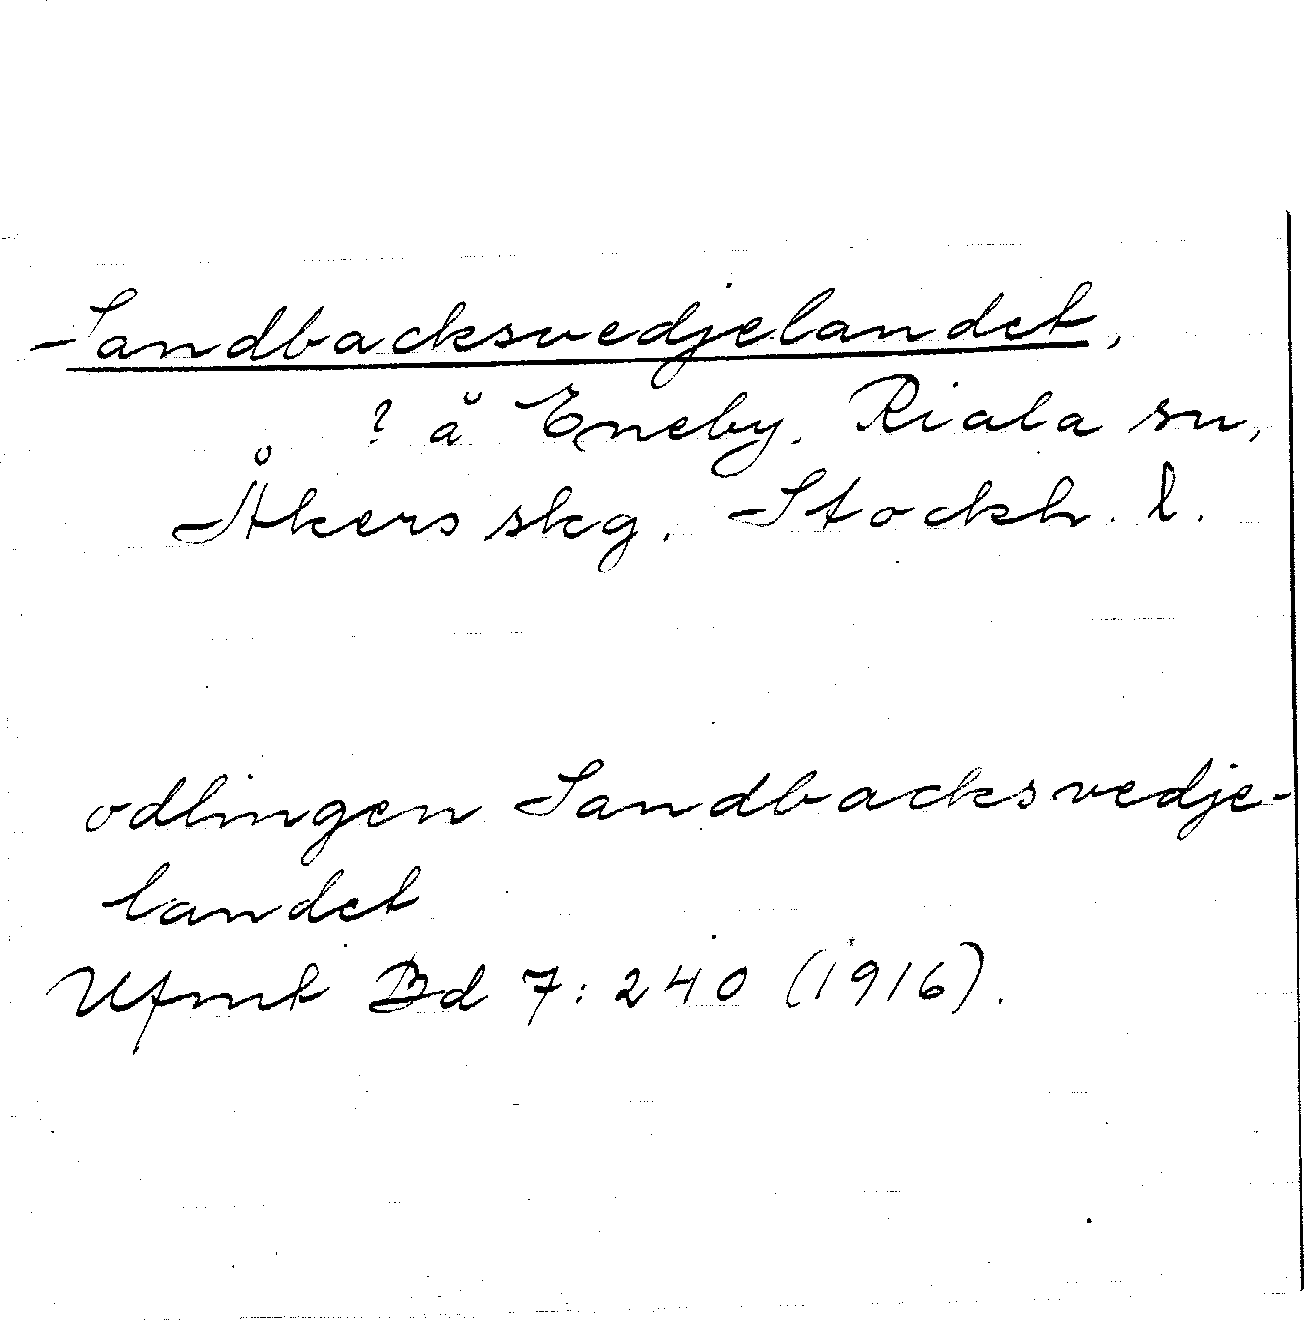 Sandbacksvedjelandet,
? å Eneby. Riala sn,
Åkers skg. Stockh. l.
odlingen Sandbacksvedje-
landet
Ufmt Bd 7:240 (1916).